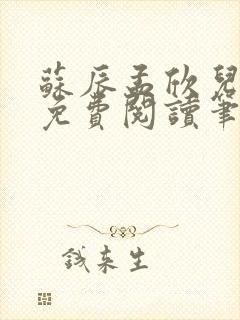 蘇辰孟欣兒
免費閱讀筆
錢來生